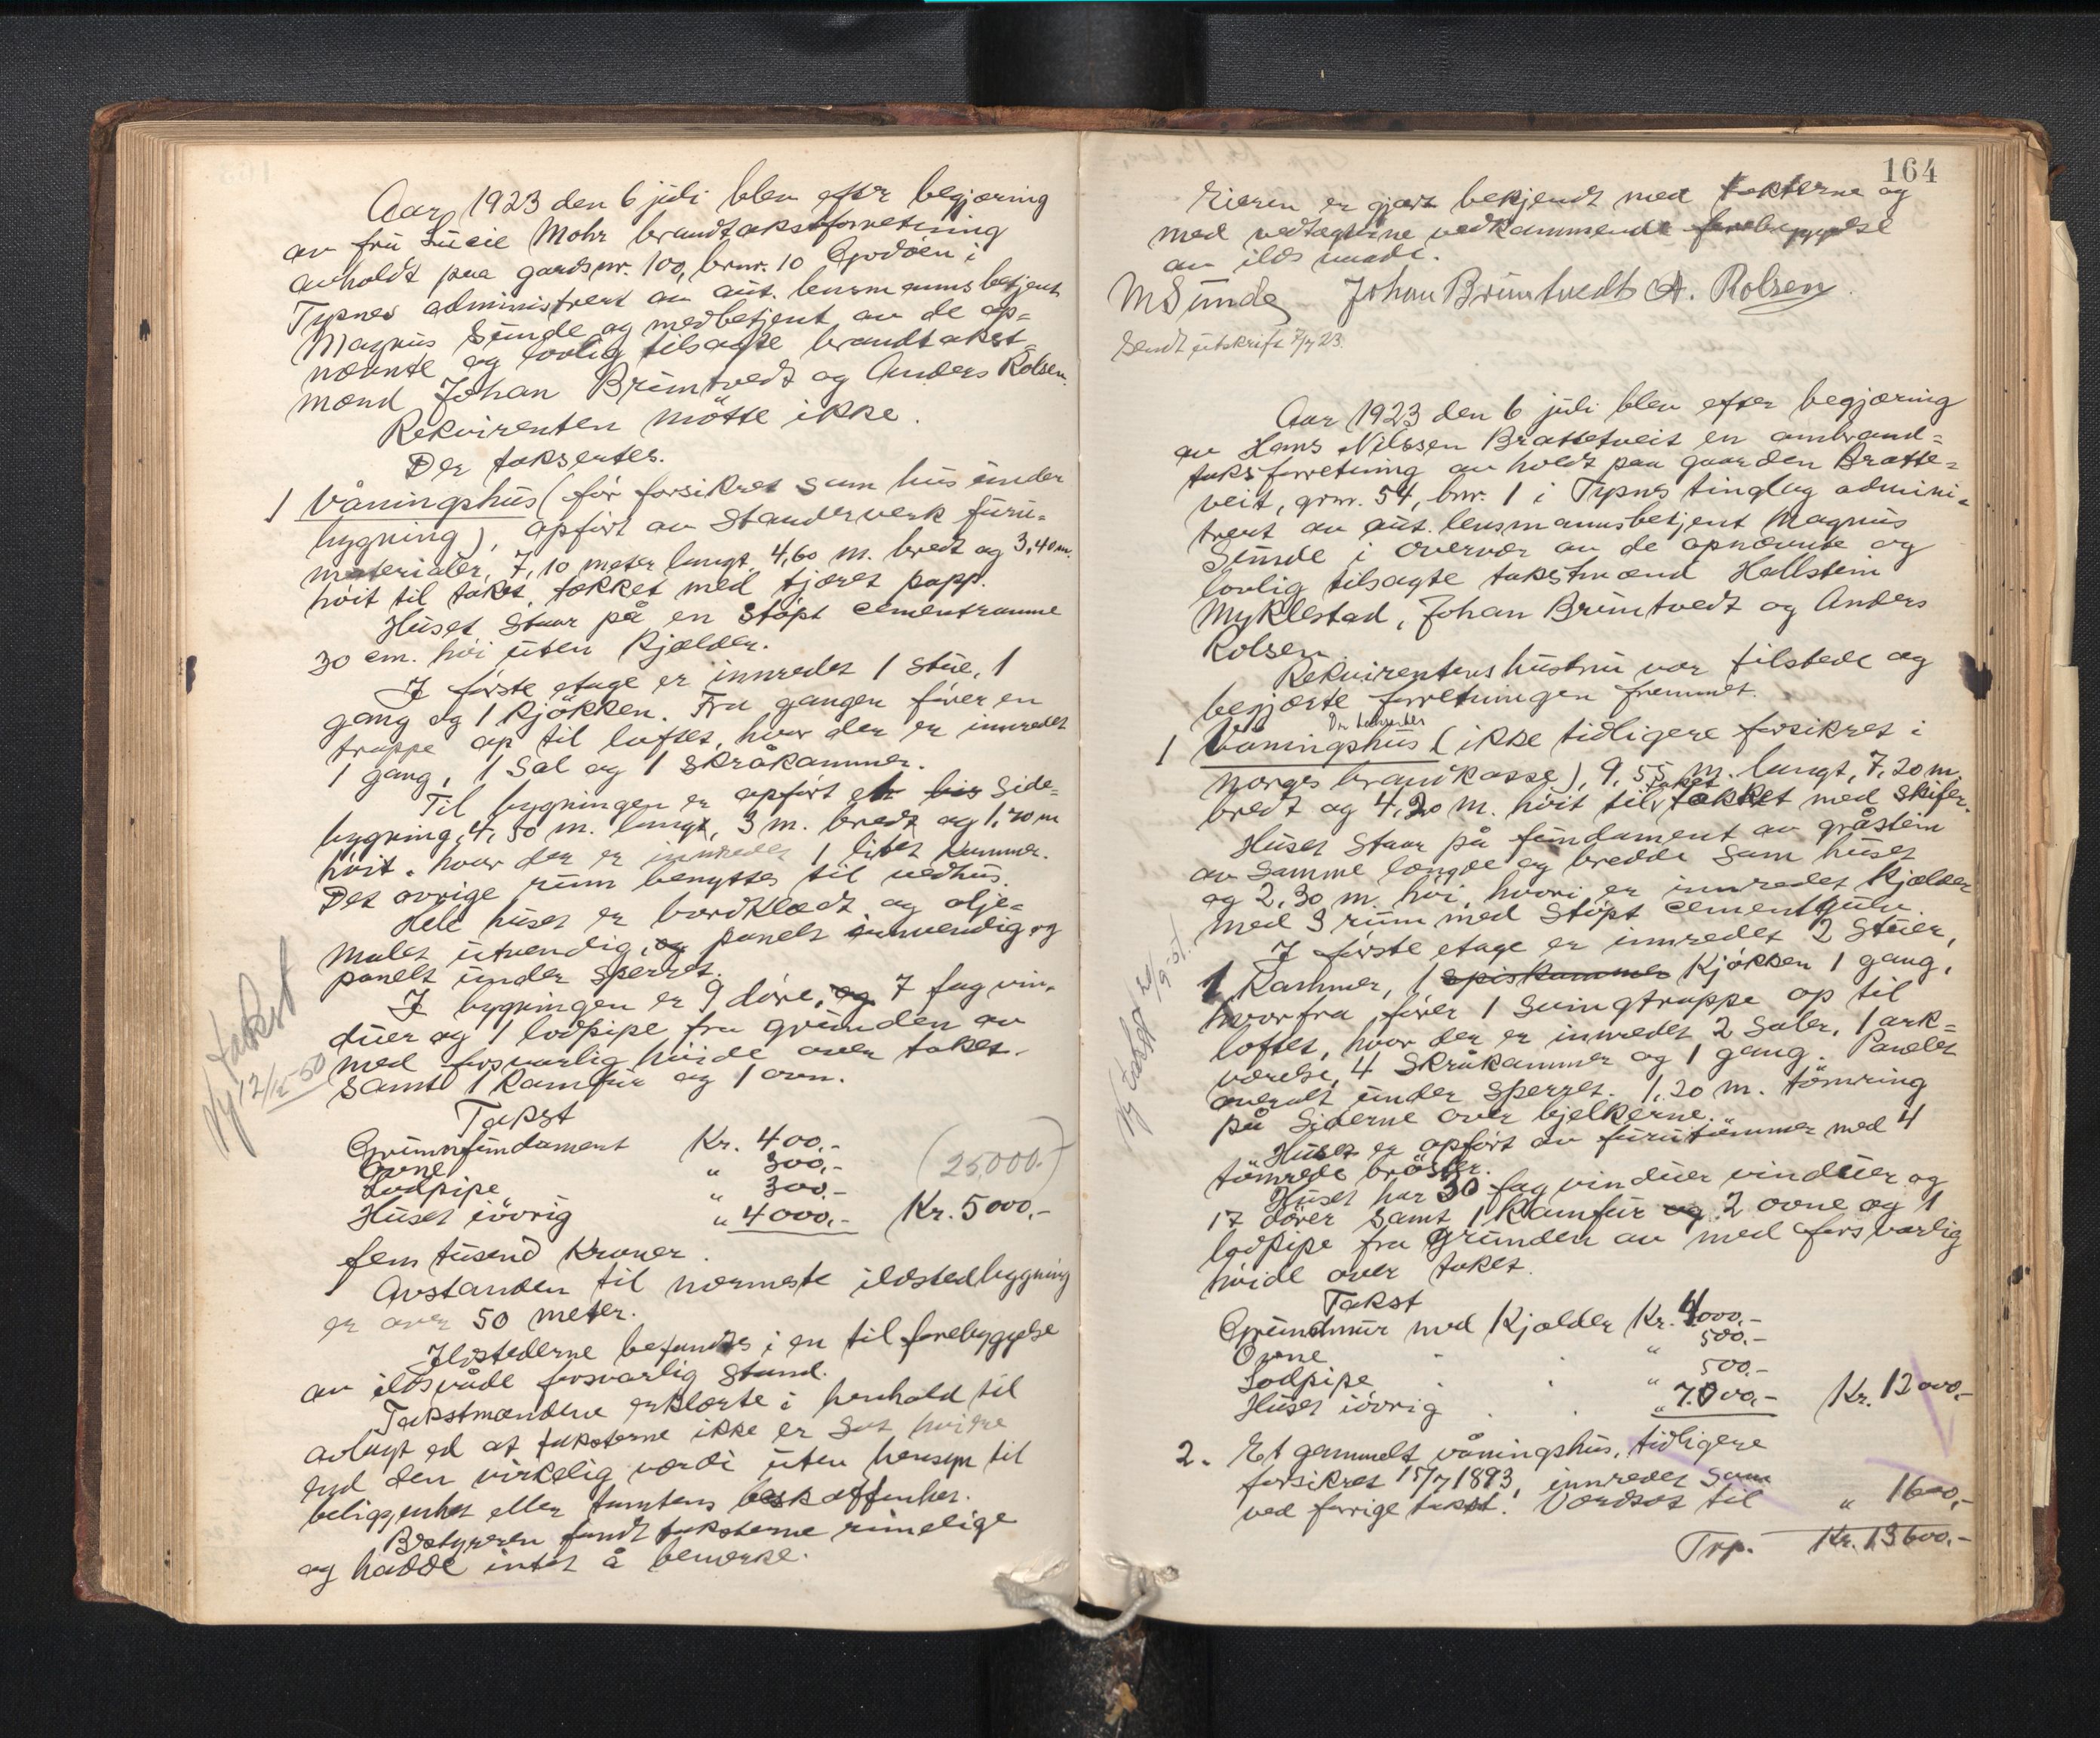 Aar 1923 den 6 juli blev efter begjæring
av fru Lucie Mohr brandtakstforretning
avholdt paa gaardsnr. 100, brnr. 10 Godöen i
Tysnes administrert av aut. lensmannsbetjent
Magnus Sunde og medbetjent av de op=
nævnte og lovlig tilsagte brandtakst=
mænd Johan Brüntvedt og Anders Rolsen.
Rekvirenten mötte ikke.
Der taksertes.
1 Våningshus (för forsikret som hus under
bygning), opfört av Standerverk furu-
materialer, 7,10 meter langt, 4,60 m. bredt og 3,40 m.
höit til taket, tækket med tjæret papp.
Huset staar på en stöpt cementramme
30 cm. höi uten kjælder.
I förste etage er innredet 1 stue, 1
gang og 1 kjökken. Fra gangen förer en
trappe op til loftet, hvor der er innredet
1 gang, 1 sal og 1 skråkammer.
Til bygningen er opfört en bis side=
bygning, 4,50 m. langt, 3 m. bredt og 1,70 m
höit, hvor der er innredet 1 litet kammer.
Det övrige rum benyttes til vedhus.
Hele huset er bordklædt og olje=
malet utvendig, og panelt innvendig og
panelt under sperret.
I bygningen er 9 döre, og 7 fag vin-
duer og 1 lodpipe fra grunden av
med forsvarlig höide over taket.
samt 1 kamfur og 1 ovn.
Ny takst
12/12-50
Takst
Grunnfundament Kr. 400,-
Ovne " 300,-
Lodpipe " 300,-
(25000.-)
Huset iövrig " 4000,- Kr. 5000,-
fem tusend Kroner.
Avstanden til nærmeste ildstedbygning
er over 50 meter.
Ildstederne befandtes i en til forebyggelse
av ildsvåde forsvarlig stand.
Takstmændene erklærte i henhold til
avlagt ed at taksterne ikke er sat höiere
end den virkelig værdi uten hensyn til
beliggenhet eller tomtens beskaffenhet.
Bestyreren fandt taksterne rimelige
og hadde intet å bemerke.
164
Eieren er gjort bekjendt med taksterne og
med vedtægterne vedkommende forebyggelse
av ildsvaade.
M Sunde Johan Brüntvedt A. Rolsen
Sendt utskrift 7/7 23.
Aar 1923 den 6 juli blev efter begjæring
av Hans Nilssen Brattetveit en ombrand=
takstforretning avholdt paa gaarden Bratte=
veit, gnr. 54, bnr. 1 i Tysnes tinglag admini-
trert av aut. lensmannsbetjent Magnus
Sunde i overvær av de opnævnte og
lovlig tilsagte takstmænd Hallstein
Myklestad, Johan Brüntvedt og Anders
Rolsen.
Rekvirentens hustru var tilstede og
begjærte forretningen fremmet.
Der taksertes
1 Våningshus (ikke tidligere forsikret i
Norges brandkasse), 9,55 m. langt, 7,20 m.
bredt og 4,20 m. höit til taket tækket med skifer.
Huset staar på fundament av gråstein
av samme længde og bredde som huset
og 2,30 m. höi, hvori er innredet kjælder
med 3 rum med stöpt cementgulv.
I förste etage er innredet 2 stuer,
1 Kammer, 1 spiskammer Kjökken 1 gang,
hvorfra förer 1 svingtrappe op til
loftet, hvor der er innredet 2 saler, 1 ark=
værelse, 4 skråkammer og 1 gang. Panelet
overalt under sperret. 1,20 m. tömring
på siderne over bjelkerne.
Ny takst
Huset er opfört av furutömmer med 4
tömrede bröster.
Huset har 30 fag vinduer vinduer og
17 dörer samt 1 kamfur og 2 ovne og 1
lodpipe fra grunden av med forsvarlig
höide over taket.
Takst
Grundmur med Kjælder Kr. 4000,-
Ovne " 500.-
Lodpipe " 500,-
Huset iövrig " 7000,- Kr. 12000,-
2. Et gammelt våningshus, tidligere
forsikret 15/7 1893, innredet som
ved forrige takst. Værdsat til " 1600,-
Trp. Kr. 13600,-